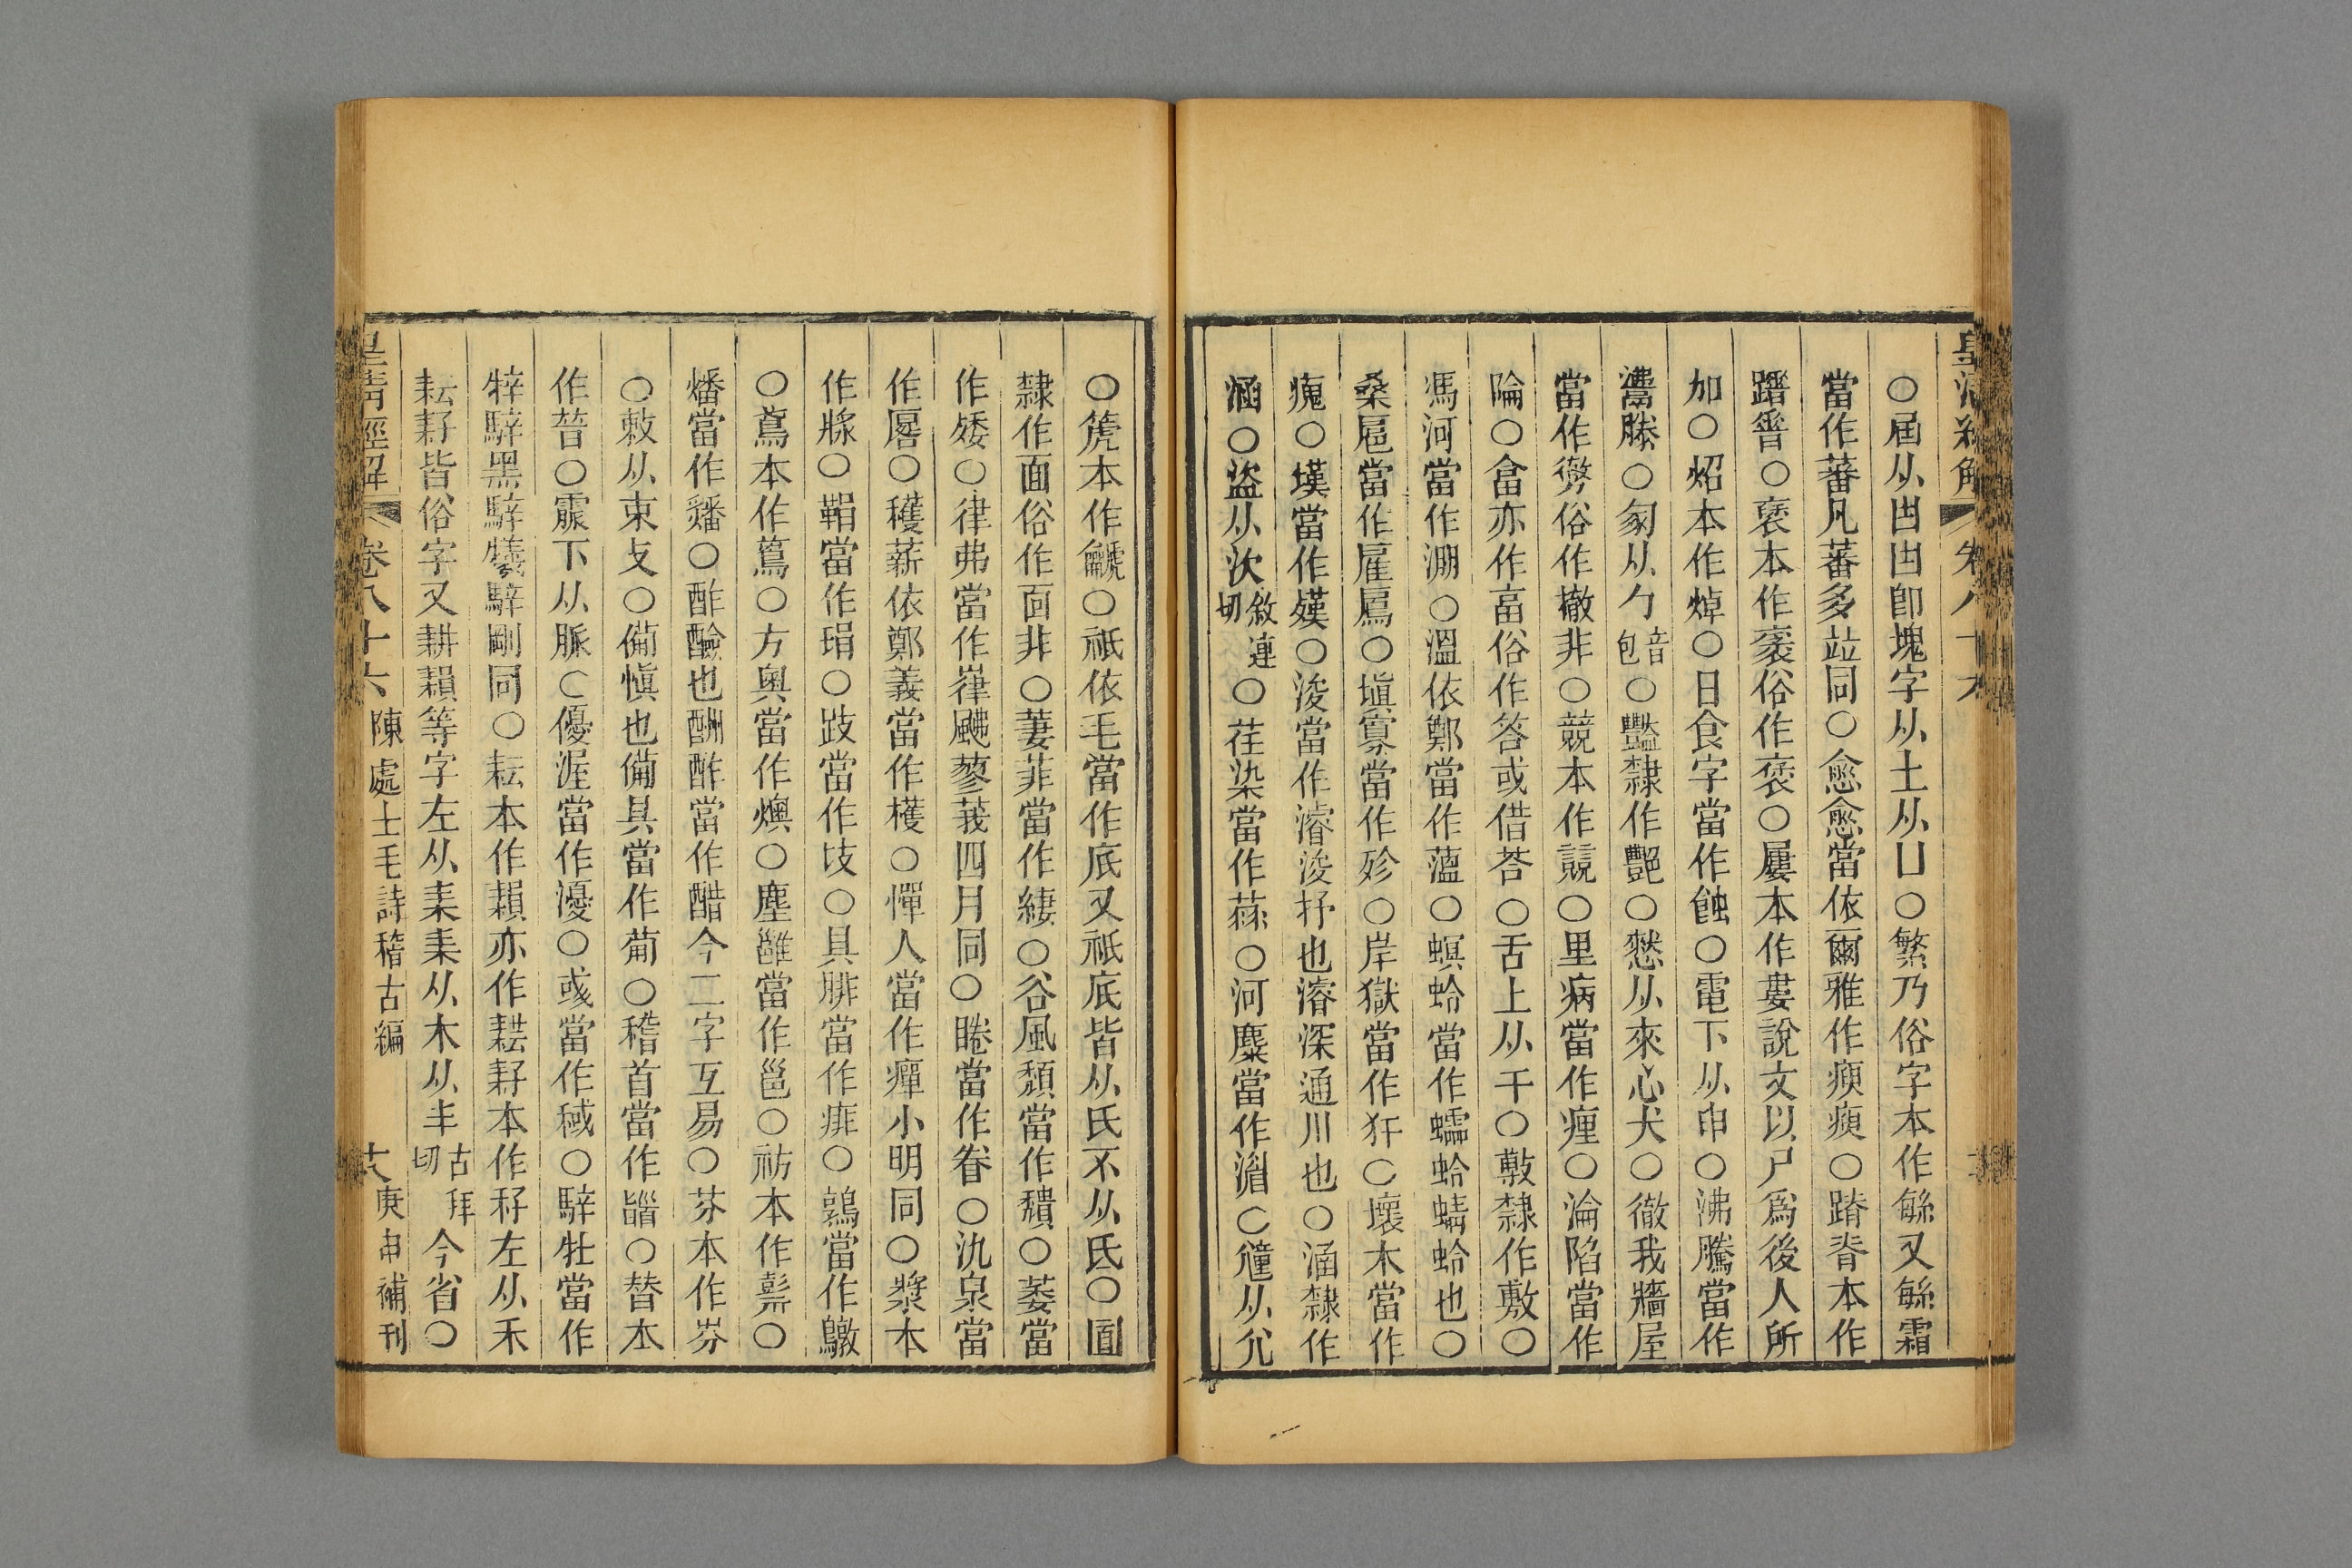 皇清經解 卷八十六
○屆从凷凷卽塊字从土从凵○繁乃俗字本作緐又緐霜
當作蕃凡蕃多竝同○愈愈當依爾雅作瘐瘐○踖脊本作
躤○褎本作褏俗作褎○屢本作婁說文以尸爲後人所
加○炤本作焯○日食字當作蝕○電下从申○沸騰當作
滕○匊从勹音包○豔隸作艷○憖从來心犬○徹我牆屋
當作勶俗作撤非○競本作竸○里病當作㾖○淪陷當作
陯○畣亦作畗俗作答或借荅○舌上从干○敷隸作敷○
馮河當作淜○溫依鄭當作蘊○螟蛉當作蠕蛉蜻蛉也○
桑扈當作雇鳸○塡寡當作殄○岸獄當作犴○壞木當作
瘣○墐當作殣○浚當作濬浚抒也濬深通川也○涵隸作
涵○盜从㳄敘連切○荏染當作䔵○河麋當作湄○尰从尣
○篪本作龥○祇依毛當作底又祇底皆从氏不从氐○靣
隸作面俗作靣非○萋菲當作緀○谷風頹當作穨○萎當
作矮○律弗當作嵂颷蓼莪四月同○睠當作眷○氿泉當
作厬○穫薪依鄭義當作檴○憚人當作癉小明同○漿本
作㯡○鞙當作琄○跂當作𢺵○具腓當作痱○鶉當作𪅏
○鳶本作蔦○方奧當作燠○塵雝當作邕○祊本作𥛱○
燔當作䊩○酢醶也酬酢當作醋今二字互易○芬本作岎
○敕从束攴○備愼也備具當作葡○稽首當作䭫○替本
作暜○霢下从脈○優渥當作瀀○彧當作稶○騂牡當作
牸騂黑騂犧騂剛同○耘本作䅬亦作耘耔本作秄左从禾
耘耔皆俗字又耕耤等字左从耒耒从木从丰古拜切今省○
皇清經解 卷八十六 陳處士毛詩稽古編 庚申補刊